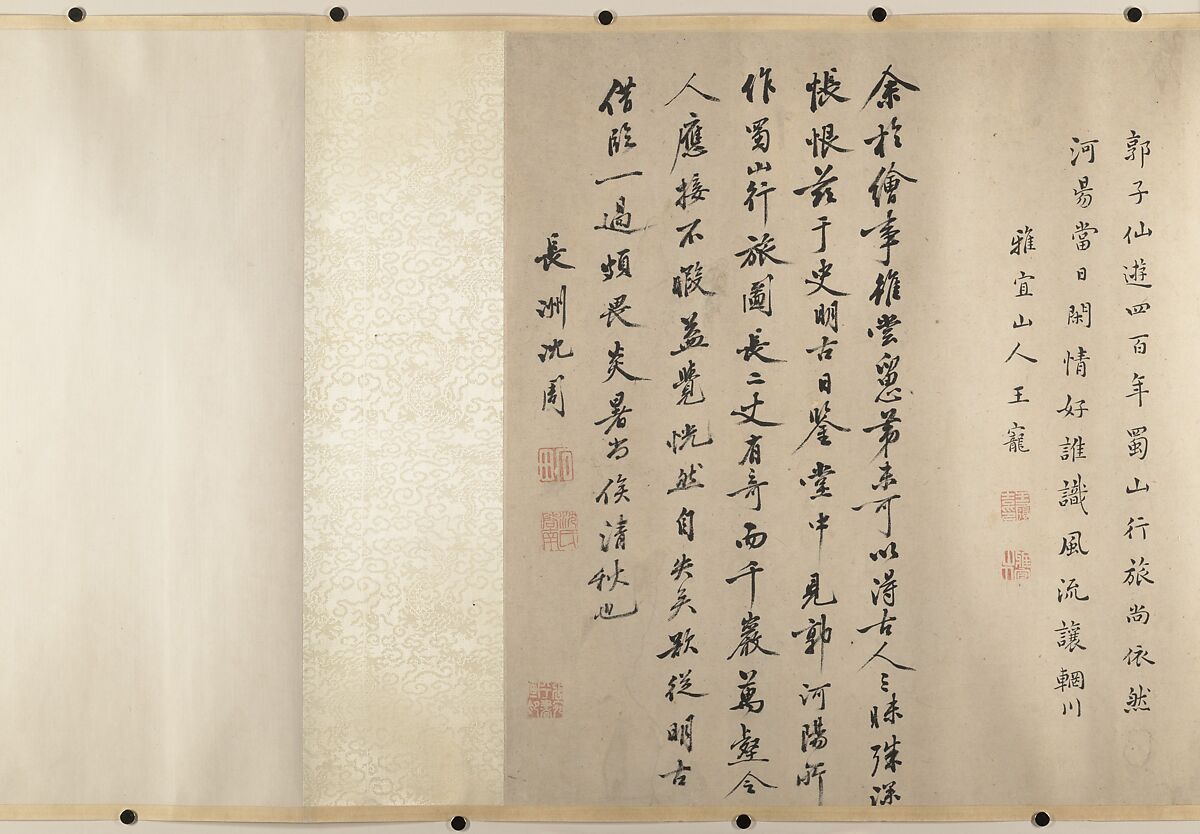 郭子仙遊四百年蜀山行旅尚依然
河昜當日閑情好誰識風流讓輞川
雅宜山人王寵
余於繪事雖嘗留思第未可以得古人三昧殊深
悵恨茲于史明古日鑒堂中見郭河陽所
作蜀山行旅圖長二丈有奇而千巖萬壑令
人應接不暇益覺恍然自失矣欲從明古
借臨一過頗畏炎暑尚俟清秋也
長洲沈周